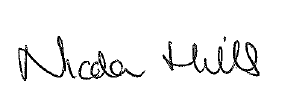 Nicola Mills